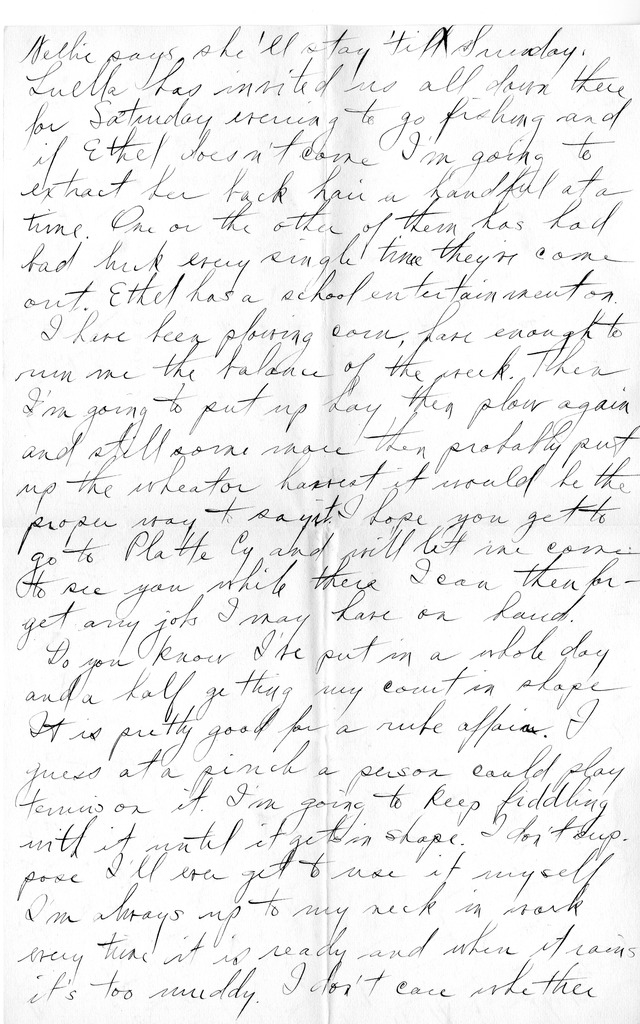 Nellie says she'll stay 'till Sunday.
Luella has invited us all down there
for Saturday evening to go fishing and
if Ethel doesn't come I'm going to
extract her back hair a handful at a
time. One or the other of them has had
bad luck every single time they've come
out. Ethel has a school entertainment on.
I have been plowing corn, have enough to
run me the balance of the week. Then
I'm going to put up hay then plow again
and still some more then probably put
up the wheat or harvest it would be the
proper way to say it. I hope you get to
go to Platte Cy and will let me come
to see you while there I can then for-
get any jobs I may have on hand.
Do you know I've put in a whole day
and a half getting my court in shape
It is pretty good for a rube affair. I
guess at a pinch a person could play
tennis on it. I'm going to keep fiddling
with it until it gets in shape. I don't sup-
pose I'll ever get to use it myself
I'm always up to my neck in work
every time it is ready and when it rains
it's too muddy. I don't care whether